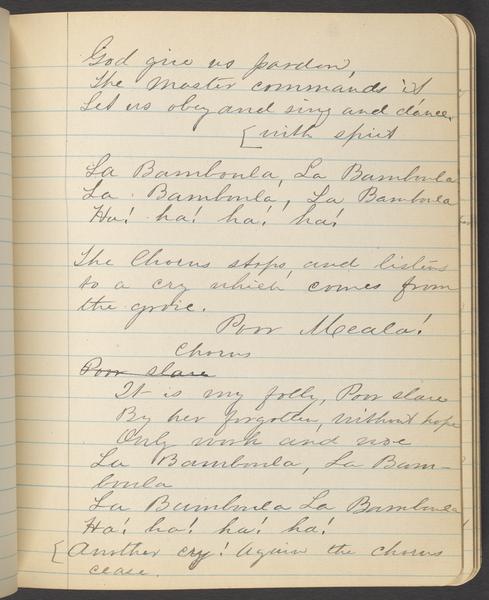 God give us pardon,
The master commands it
Let us obey and sing and dance,
[with spirit
La Bamboula, La Bamboula
La Bamboula, La Bamboula
Ha! ha! ha! ha!
The Chorus stops, and listens
to a cry which comes from
the grove.
Poor Meala!
Chorus
Poor slave
It is my folly, Poor slave
By her forgotten, without hope
Only work and woe
La Bamboula, La Bam-
boula
La Bamboula La Bamboula
Ha! ha! ha! ha!
[Another cry! Again the chorus
cease.